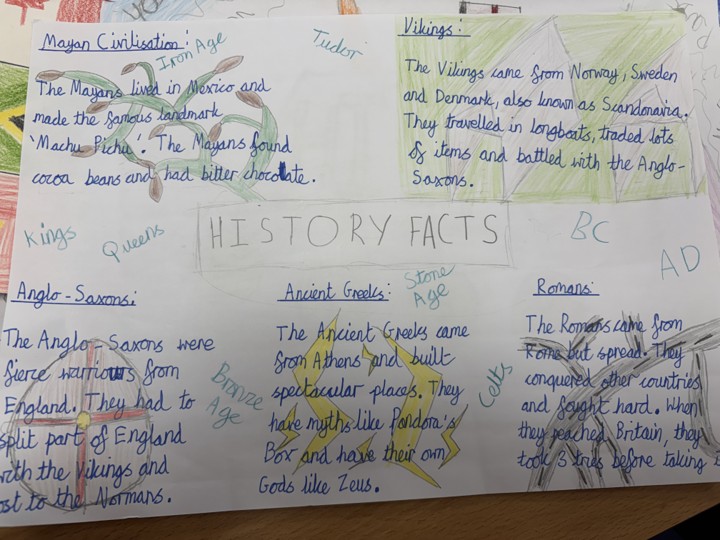 Mayan Civilisation:
Iron Age
Tudor
The Mayans lived in Mexico and
made the famous landmark
'Machu Pichu'. The Mayans found
cocoa beans and had bitter chocolate.
Vikings:
The Vikings came from Norway, Sweden
and Denmark, also known as Scandanavia.
They travelled in longboats, traded lots
of items and battled with the Anglo-
Saxons.
Kings
Queens
HISTORY FACTS
BC
AD
Anglo-Saxons:
The Anglo-Saxons were
fierce warriours from
England. They had to
split part of England
with the Vikings and
lost to the Normans.
Bronze
Age
Ancient Greeks:
Stone
Age
The Ancient Greeks came
from Athens and built
spectacular places. They
have myths like Pandora's
Box and have their own
Gods like Zeus.
Celts
Romans:
The Romans came from
Rome but spread. They
conquered other countries
and fought hard. When
they reached Britain, they
took 3 tries before taking